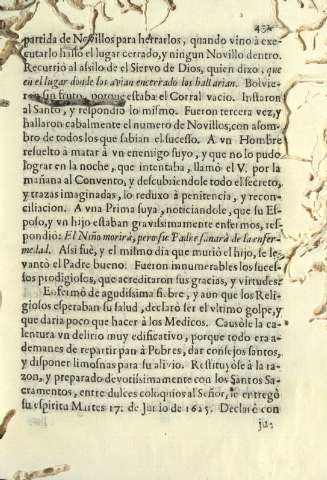 partida de Novillos para herrarlos, quando vino à exe-
cutarlo hallò el lugar cerrado, y ningun Novillo dentro.
Recurriò al asilo de el Siervo de Dios, quien dixo, que
en el lugar donde los avian encerrado los hallarian. Bolvie-
ron sin fruto, porque estaba el Corral vacio. Instaron
al Santo, y respondiò lo mismo. Fueron tercera vez, y
hallaron cabalmente el numero de Novillos, con asom-
bro de todos los que sabian el sucesso. A vn Hombre
resuelto a matar à vn enemigo suyo, y que no lo pudo
lograr en la noche, que intentaba, llamò el V. por la
mañana al Convento, y descubriendole todo el secreto,
y trazas imaginadas, lo reduxo à penitencia, y recon-
ciliacion. A vna Prima suya, noticiandole, que su Es-
poso, y vn hijo estaban gravissimamente enfermos, res-
pondiò: El Niño morirà, pero su Padre sanarà de la enfer-
medad. Assi fuè, y el mismo dia que muriò el hijo, se le-
vantò el Padre bueno. Fueron innumerables los suces-
sos prodigiosos, que acreditaron sus gracias, y virtudes.
Enfermò de agudissima fiebre, y aun que los Reli-
giosos esperaban su salud, declarò ser el vltimo golpe, y
que daria poco que hacer à los Medicos. Causòle la ca-
lentura vn delirio muy edificativo, porque todo era a-
demanes de repartir pan à Pobres, dar consejos santos,
y disponer limosnas para su alivio. Restituyòse à la ra-
zon, y preparado devotissimamente con los Santos Sa-
cramentos, entre dulces coloquios al Señor, le entregò
su espiritu Martes 17. de Junio de 1625. Declarò con
ju-